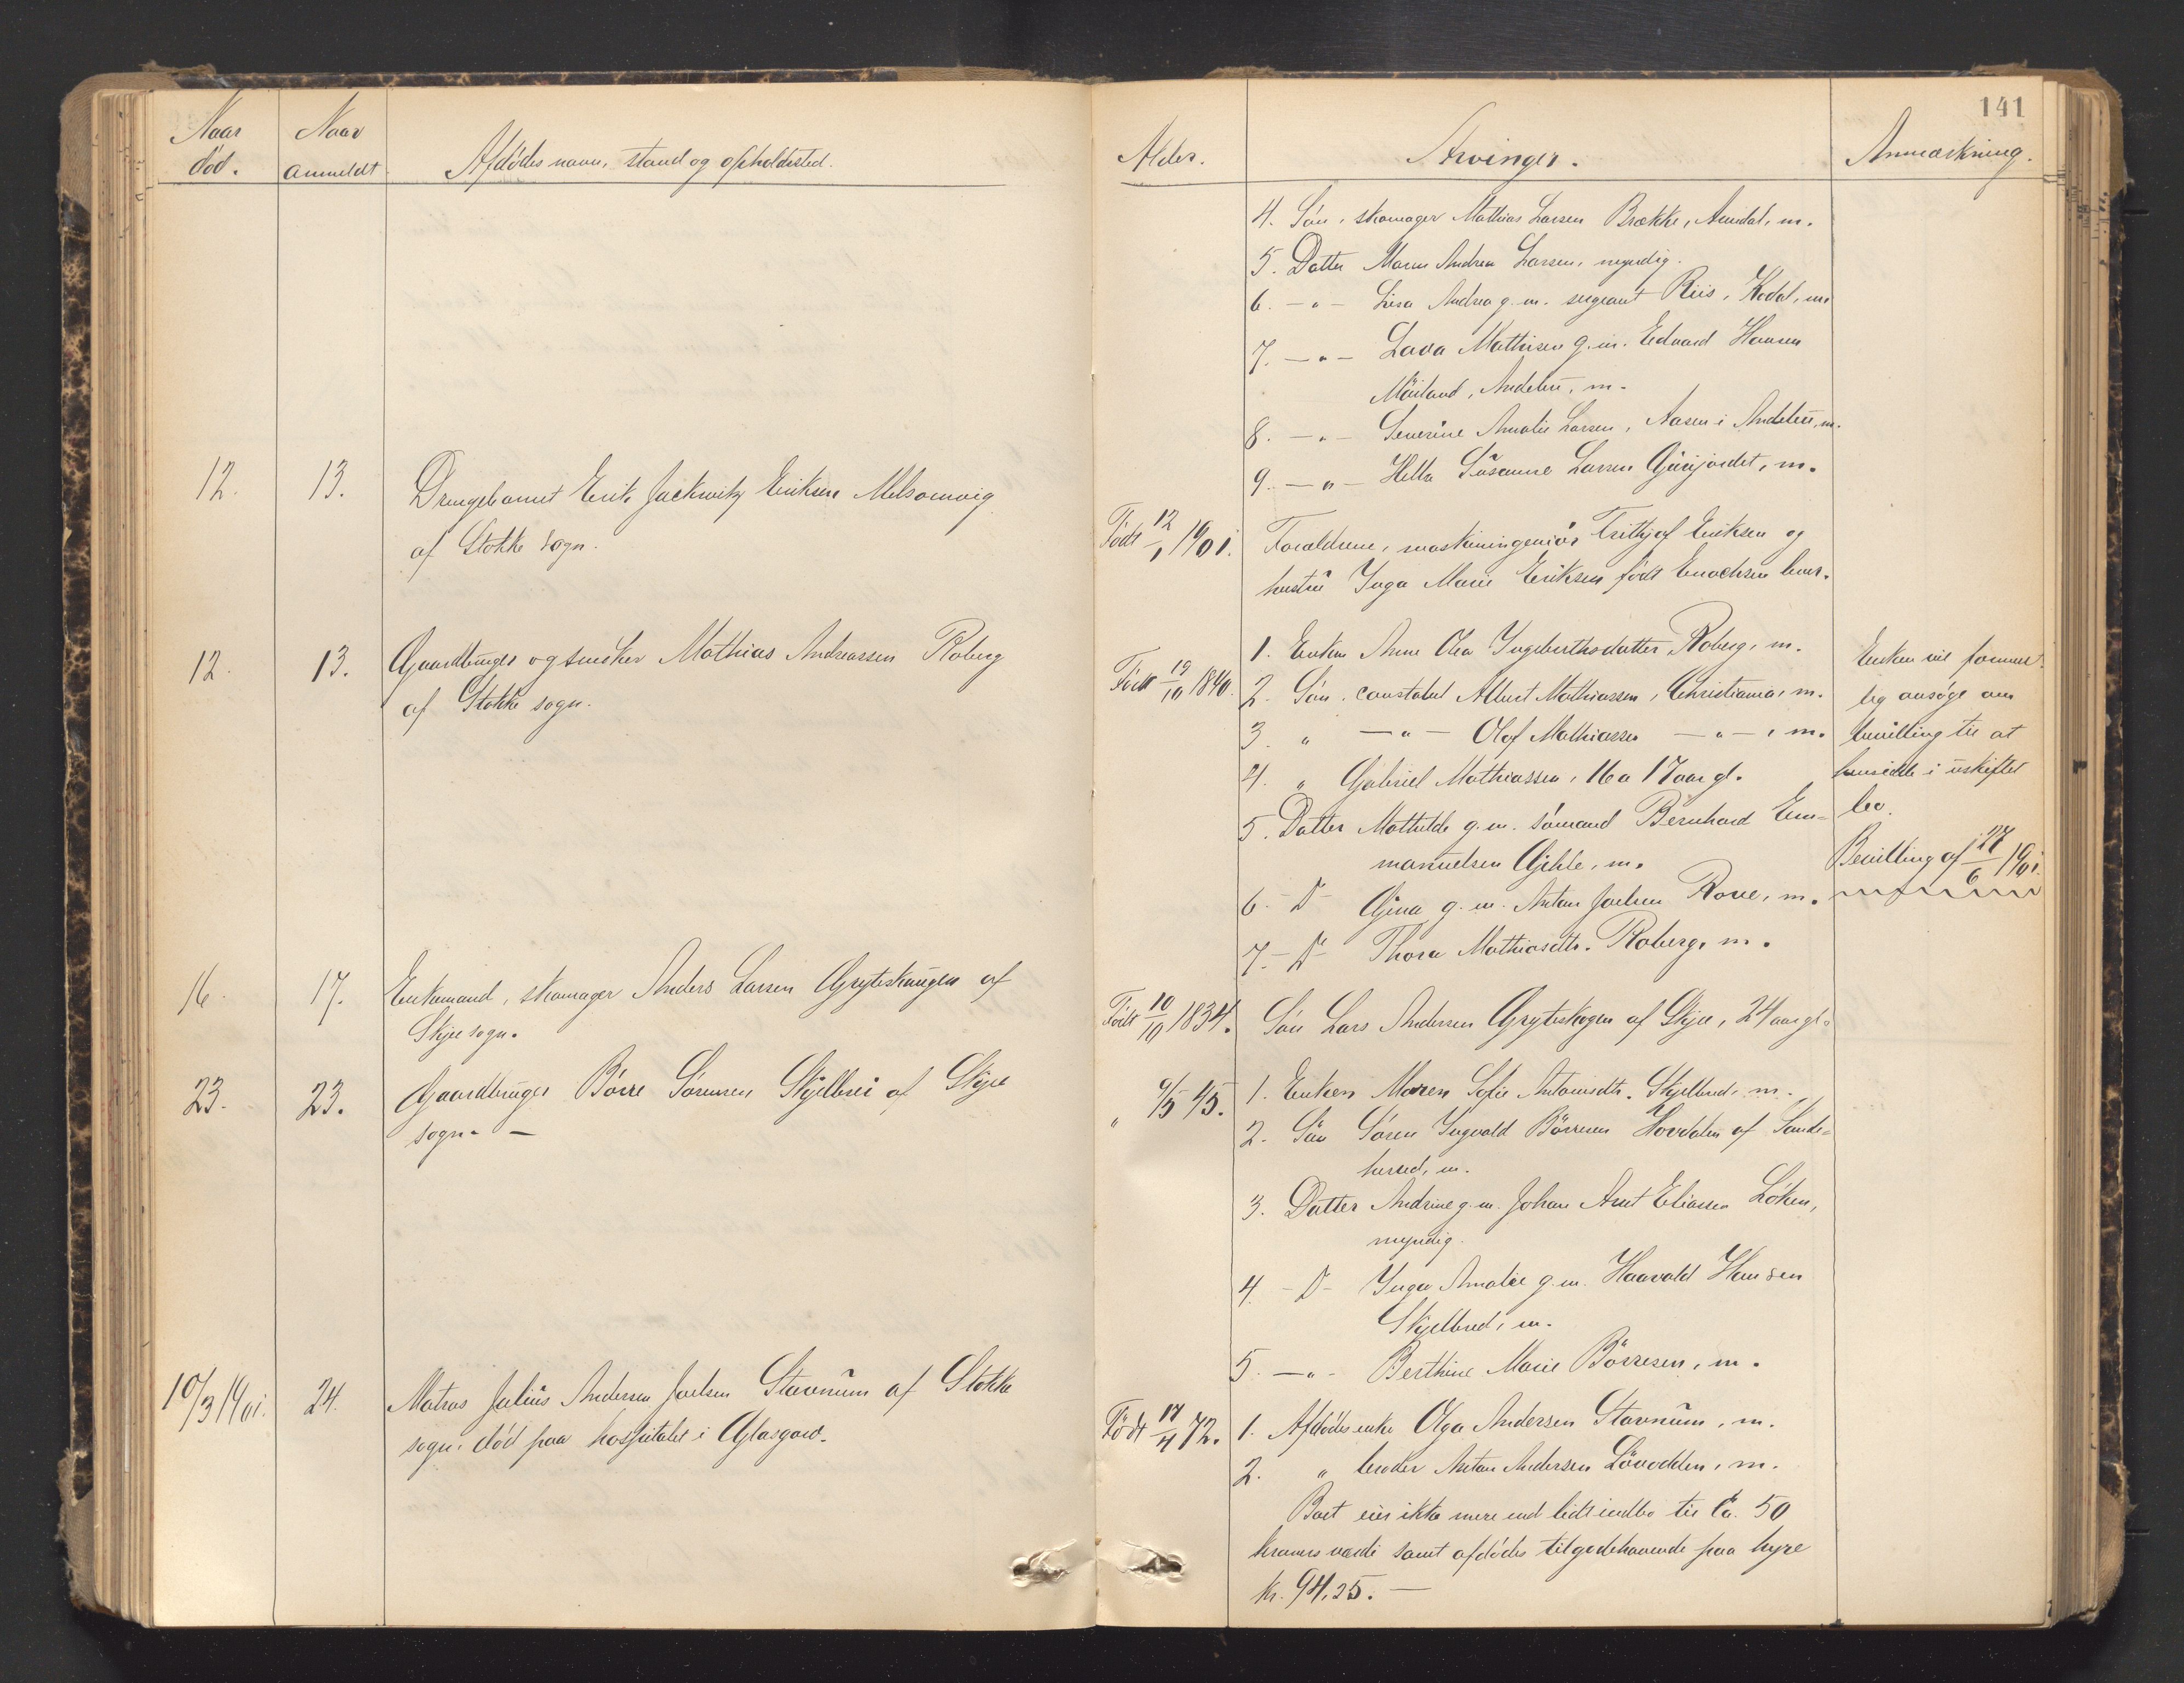 141
Naar død.
Naar anmeldt.
Afdødes navn, stand og opholdssted.
Alder.
Arvinger.
Anmærkning.
4. Søn, skomager Mathias Larsen Brække, Arendal, m.
5. Datter Maren Andrea Larsen, myndig.
6. - " - Lisa Andrea g. m. sergeant Riis, Kodal, m.
7. - " - Lava Mathisen g. m. Edvard Hansen
Møiland, Andebu, m.
8. - " - Severine Amalie Larsen, Aasen i Andebu, m.
9. - " - Hella Susanne Larsen Gjerjordet, m.
12.
13.
Drengebarnet Erik Jackwitz Eriksen Melsomvig
af Stokke sogn.
Født 12/1 1901.
Forældrene, maskiningeniør Frithjof Eriksen og
hustru Inga Marie Eriksen født Enochsen lever.
12.
13.
Gaardbruger og snedker Mathias Andreassen Roberg
af Stokke sogn.
Født 19/10 1840.
1. Enken Anne Olea Ingebrethsdatter Roberg, m.
2. Søn, constabel Albert Mathiassen, Christiania, m.
3. " - " - Olof Mathiassen - " - , m.
4. " Gabriel Mathiassen, 16 a 17 aar gl.
5. Datter Mathilde g. m. sømand Bernhard Em-
manuelsen Gjekle, m.
6. - D - Gina g. m. Anton Joelsen Rove, m.
7. - D - Thora Mathiasdtr. Roberg, m.
Enken vil forment-
lig ansøge om
bevilling til at
hensidde i uskiftet
bo.
Bevilling af 27/6 1901.
16.
17.
Enkemand, skomager Anders Larsen Gryteskaugen af
Skjee sogn.
Født 10/10 1834.
Søn Lars Andersen Gryteskogen af Skjee, 24 aar gl.
23.
23.
Gaardbruger Börre Sørensen Skjelbrei af Skjee
sogn. -
" 9/5 45.
1. Enken Maren Sofie Antonisdtr. Skjelbred, m.
2. Søn Søren Ingvald Börresen Hovdalen af Sande-
herred, m.
3. Datter Andrine g. m. Johan Arnt Eliassen Løken,
myndig.
4. - D - Inga Amalie g. m. Haavald Hansen
Skjelbred, m.
5. - " - Berthine Marie Börresen, m.
10/3 1901.
24.
Matros Julius Andersen Joelsen Stavnum af Stokke
sogn, død paa hospitalet i Glasgow.
Født 17/4 72.
1. Afdødes enke Olga Andersen Stavnum, m.
2. " broder Anton Andersen Lövodden, m.
Boet eier ikke mere end lidt indbo til Ca. 50
kroners værdi samt afdødes tilgodehavende paa hyre
kr. 94,25. -